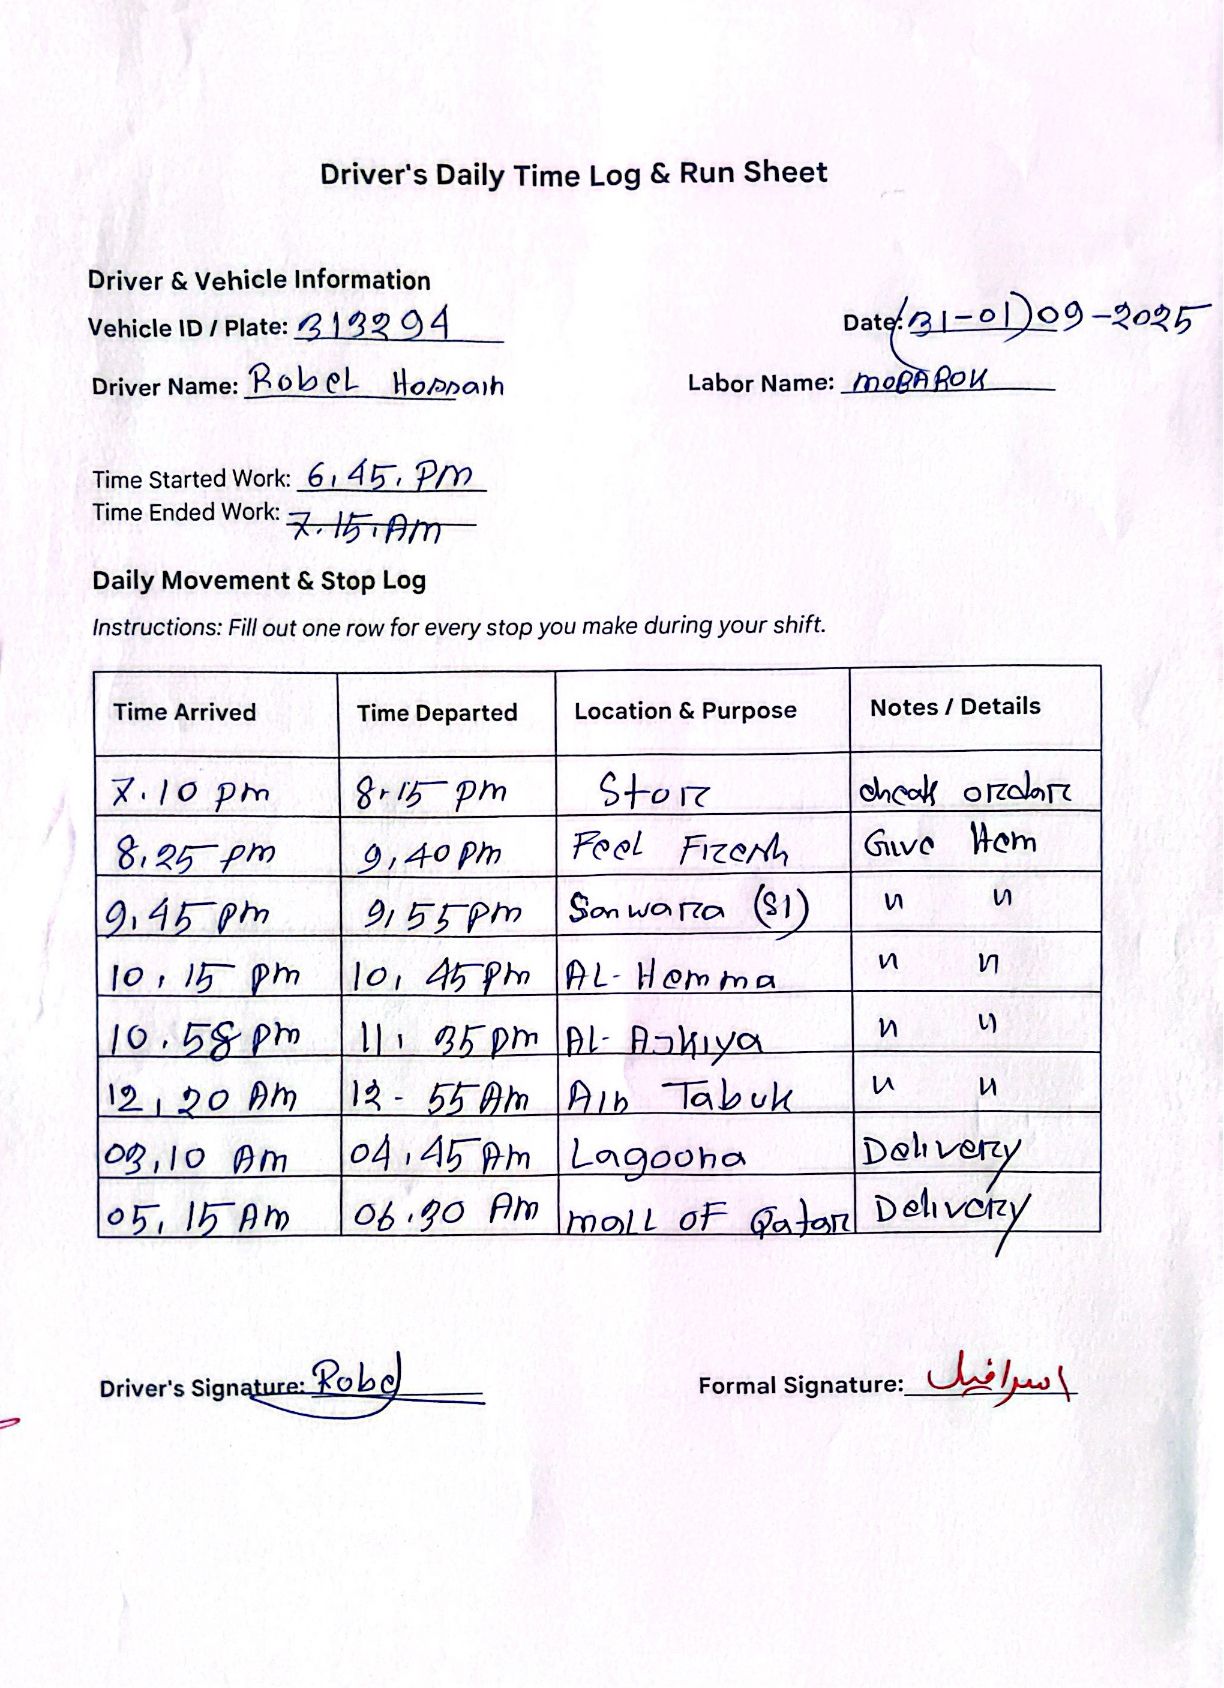 Driver's Daily Time Log & Run Sheet
Driver & Vehicle Information
Vehicle ID / Plate: 313294
Date: (31-01) 09-2025
Driver Name: Robel Hossain
Labor Name: MOBAROK
Time Started Work: 6,45, PM
Time Ended Work: 7.15, Am
Daily Movement & Stop Log
Instructions: Fill out one row for every stop you make during your shift.
Time Arrived Time Departed Location & Purpose Notes / Details
7.10 pm 8.15 pm Stor cheak ordar
8,25 pm 9,40 pm Feel Fresh Give Hem
9,45 pm 9,55 pm Sanwara (S1) " "
10,15 pm 10,45 Pm AL-Hemma " "
10.58 pm 11, 35 pm " "
12,20 Am 12-55 Am Ain Tabuk " "
03,10 Am 04,45 Am Lagoona Delivery
05,15 Am 06.30 Am mall OF Qatar Delivery
Driver's Signature: Robel
Formal Signature: اسرافيل